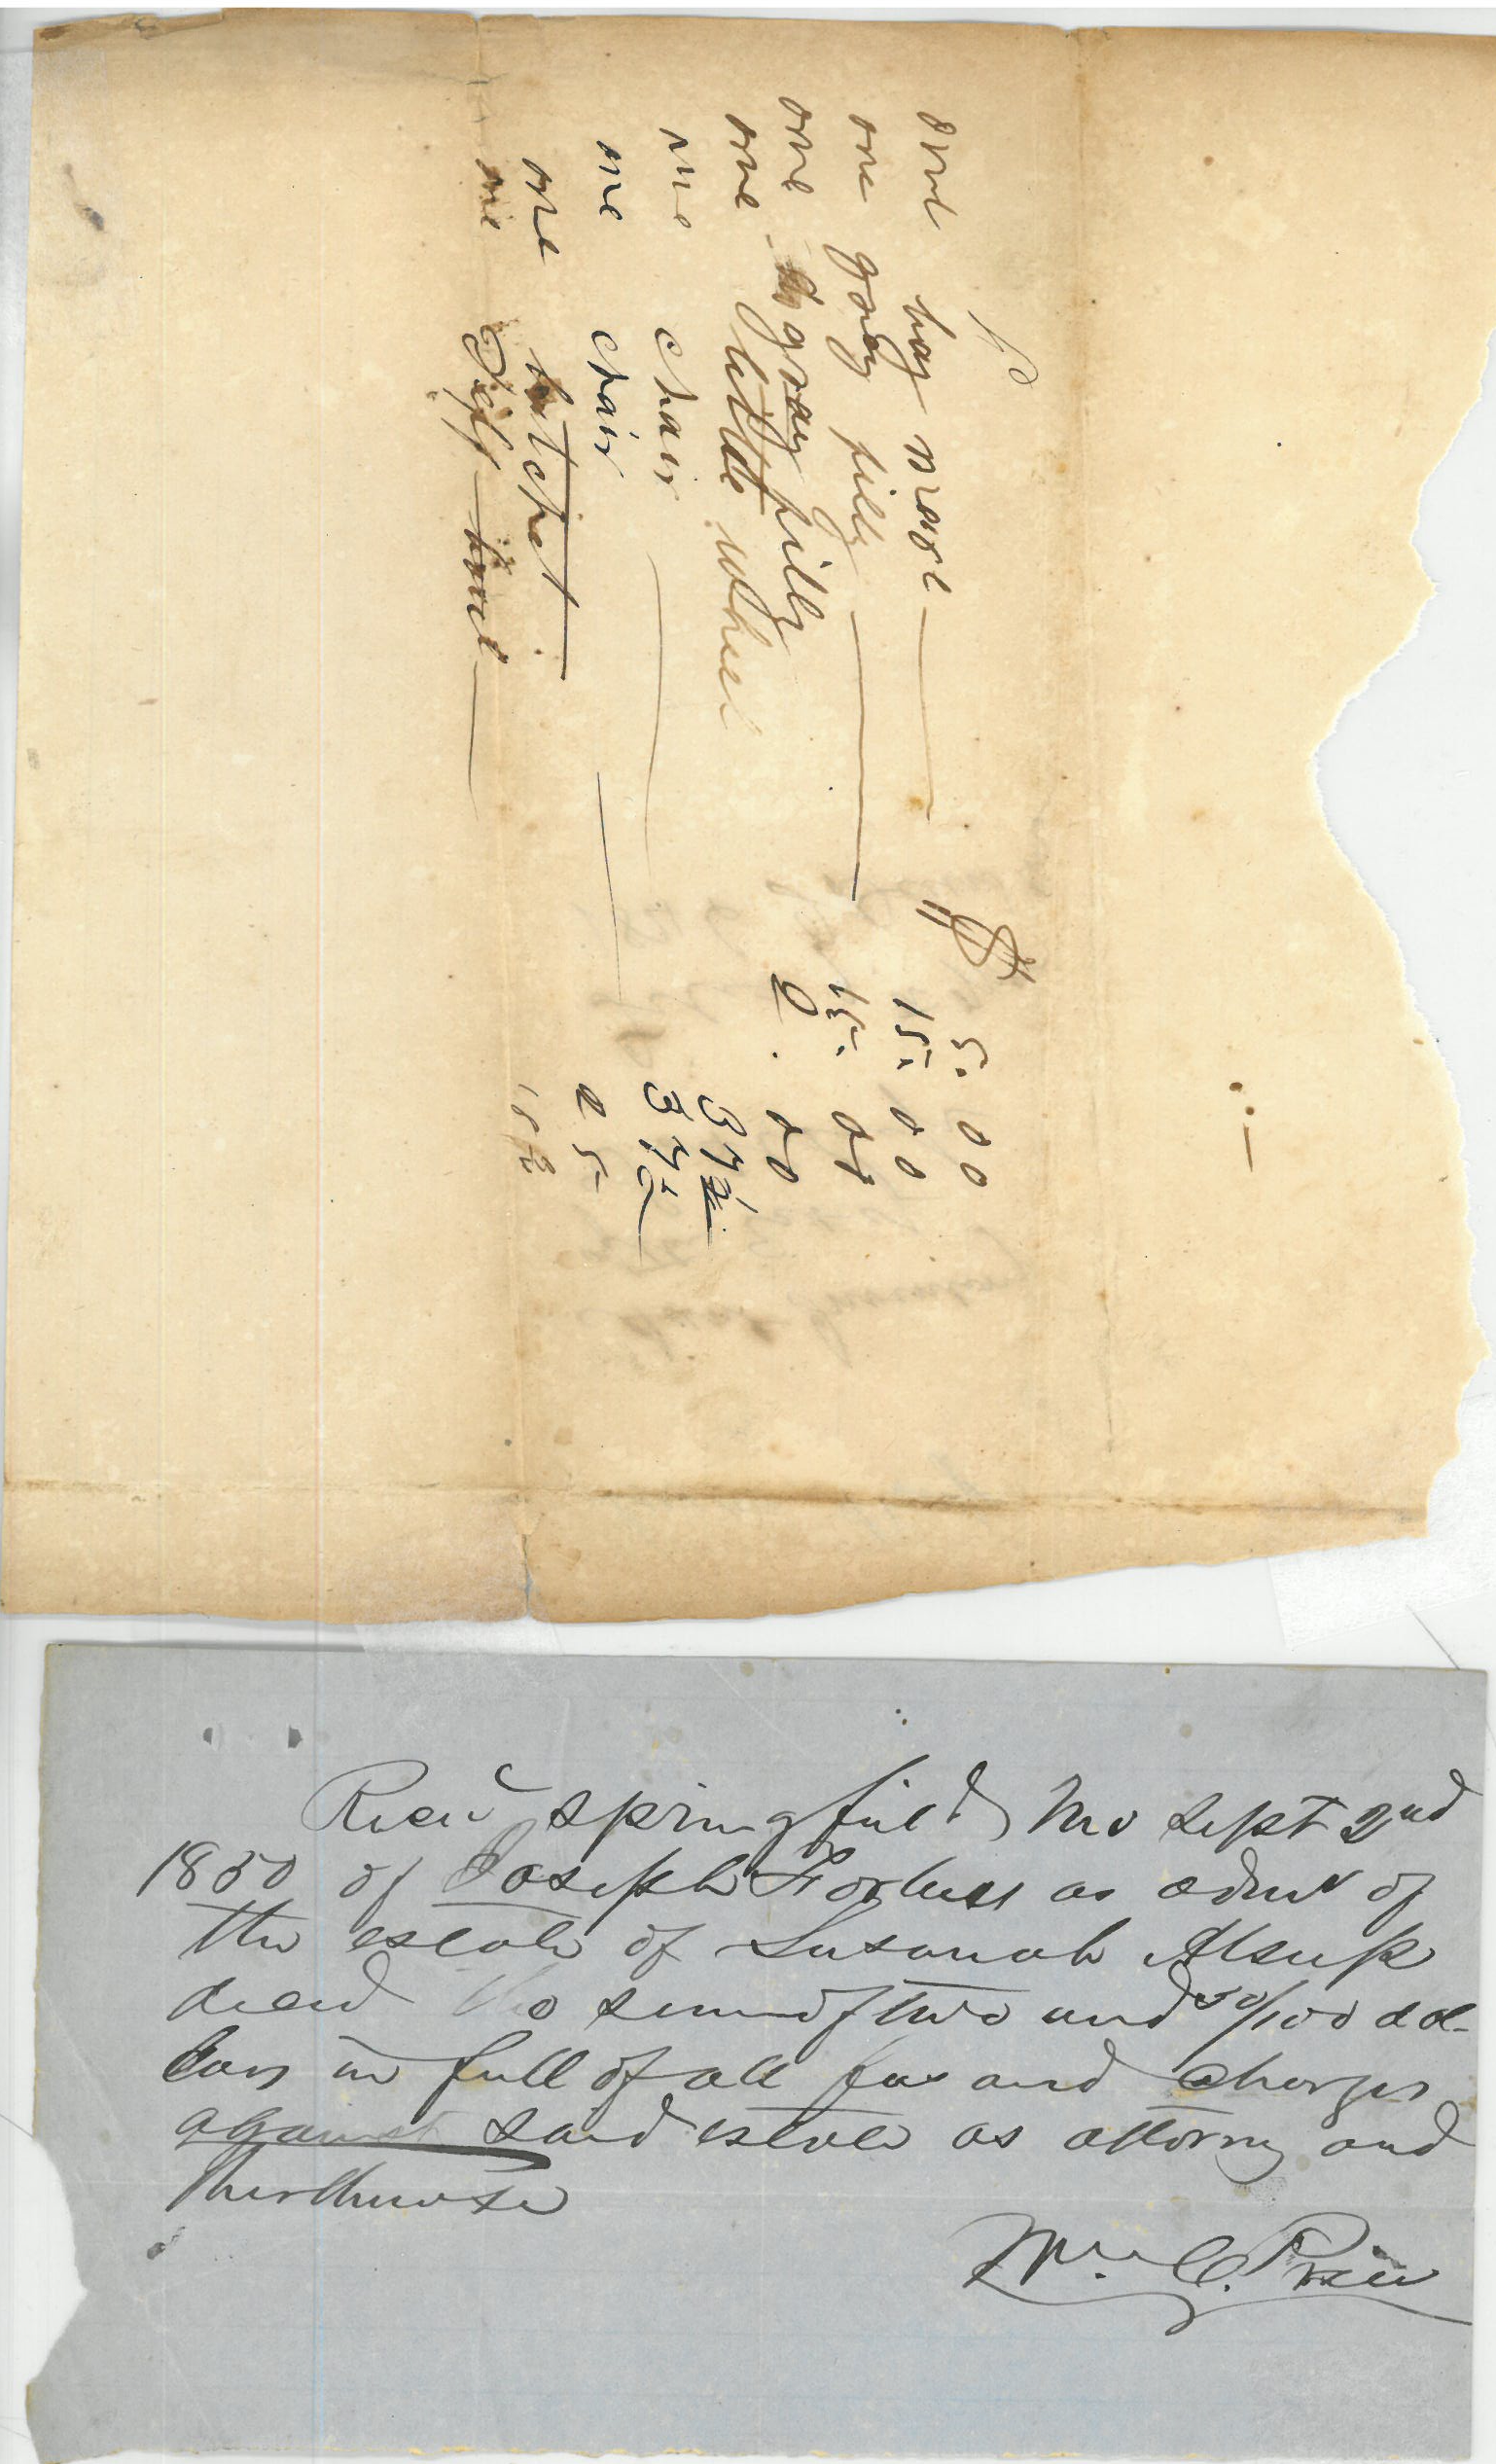 one bay mare $ 5.00
one gray filly 15.00
one gray filly 15.00
one little wheel 0.00
one chair 37½
one chair 37½
one hatchet 25
one
Recd Springfield Mo Sept 2nd
1850 of Joseph Forbess as admr of
the estate of Susanah Alsup
decd the sum of two and 50/100 dol-
lars in full of all fees and charges
against said estate as attorney and
Wm. C. Price